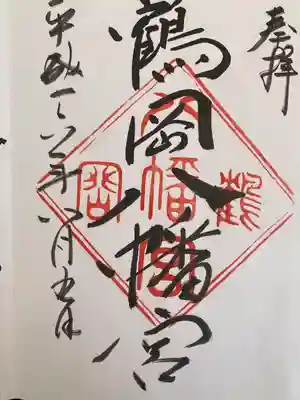 奉拝
鶴岡八幡宮
平成二八年八月五日
鶴
八幡宮
岡